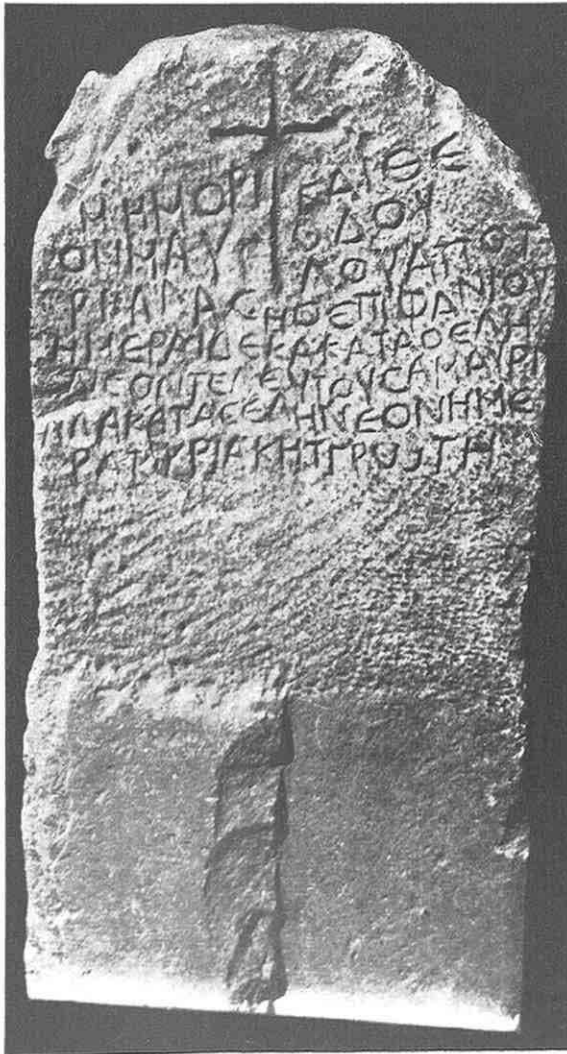 ΜΗΜΟΡΙ ΕΔΙΘΕ
ΟΝΜΑΥΡ ΟΔΟΥ
ΛΘΥΑΠΟΤ
ΗϹΕΠΙΦΑΝΙΟΥ
ΗΜΕΡΑΙΔΕΚΑΚΑΤΑΘΕΛΗ
ΝΕΟΝΤΕΛΕΥΤΟΥϹΑΜΑΥΡΙ
ΚΑΤΑϹΕΛΗΝΕΟΝΗΜΕ
ΡΑΚΥΡΙΑΚΗΤΠΡΟΥΤΗ